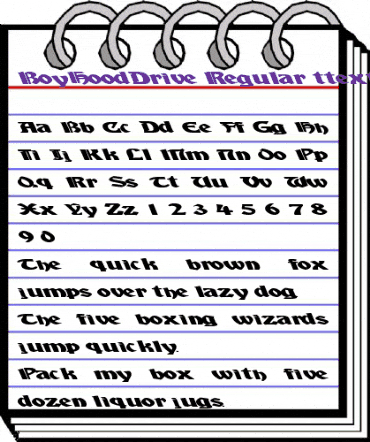 BoyHoodDrive Regular ttext
Aa Bb Cc Dd Ee Ff Gg Hh
Ii Jj Kk Ll Mm Nn Oo Pp
Qq Rr Ss Tt Uu Vv Ww
Xx Yy Zz 1 2 3 4 5 6 7 8
9 0
The quick brown fox
jumps over the lazy dog
The five boxing wizards
jump quickly.
Pack my box with five
dozen liquor jugs